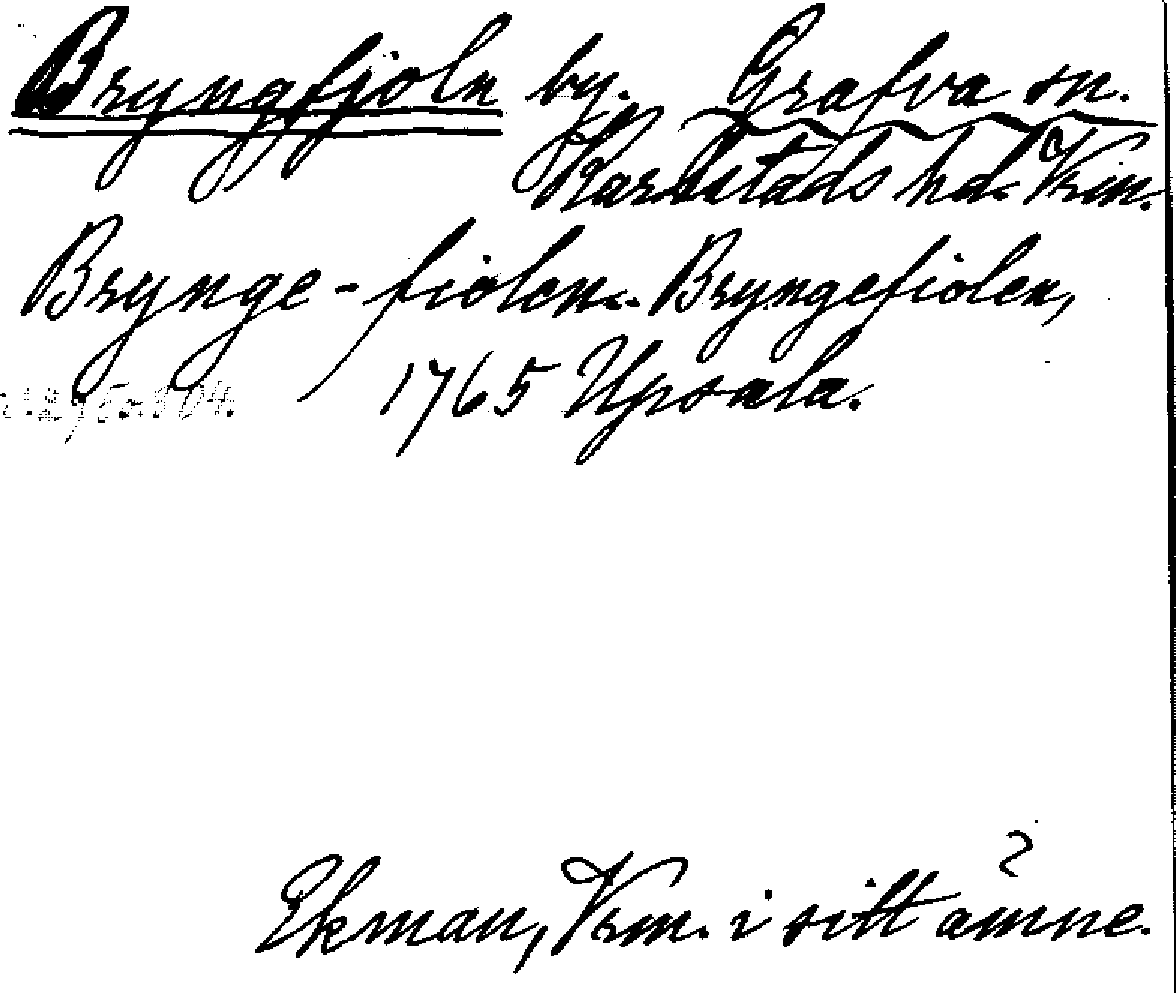 Bryngfjoln by. Grafva sn.
Karlstads hd. Vrm.
Brynge-fiolen. Bryngefiolen,
1765 Upsala.
Ekman, Vrm. i sitt ämne.